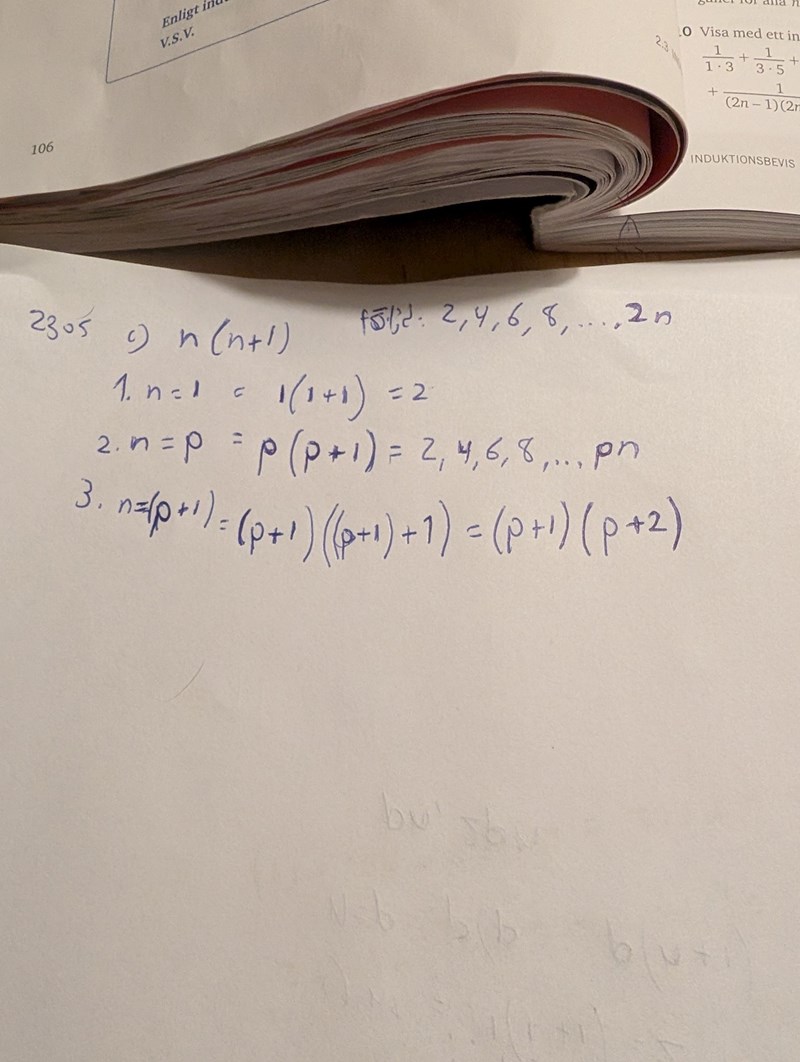 Enligt
V.S.V.
106
.0 Visa med ett in
1/1·3 + 1/3·5 +
+ 1/(2n – 1)(2n
INDUKTIONSBEVIS
2305 c) n(n+1) följd: 2,4,6,8,...,2n
1. n=1 = 1(1+1) = 2
2. n=p = p(p+1) = 2,4,6,8,... pn
3. n=(p+1) = (p+1)((p+1)+1) = (p+1)(p+2)